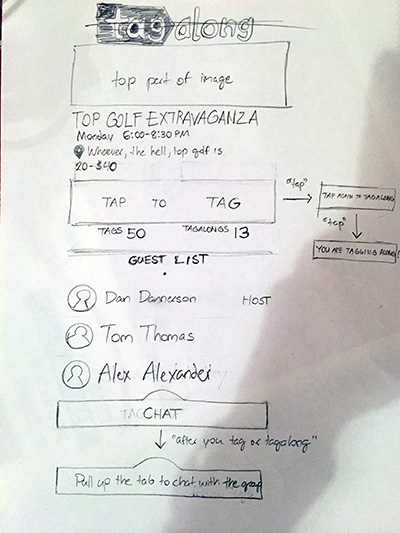 tagalong
top part of image
TOP GOLF EXTRAVAGANZA
Monday 6:00-8:30 PM
Wherever, the hell, top golf is
20-$40
TAP TO TAG
"tap"
TAP AGAIN TO TAGALONG
"tap"
YOU ARE TAGGING ALONG!
TAGS 50 TAGALONGS 13
GUEST LIST
Dan Dannerson HOST
Tom Thomas
Alex Alexander
CHAT
"after you tag or tagalong"
Pull up the tab to chat with the group